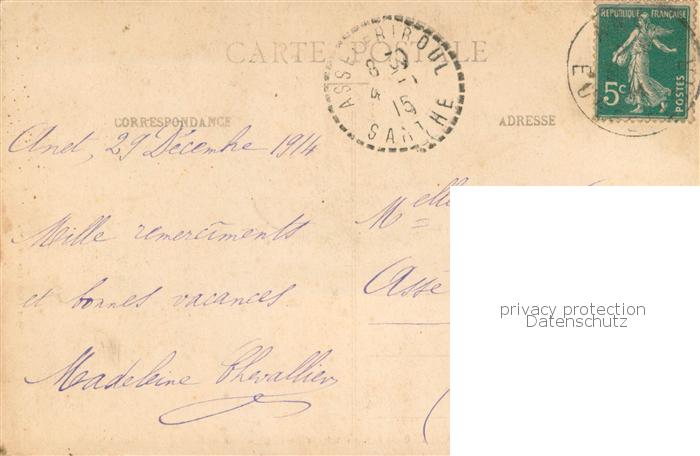 CARTE POSTALE
ASSÉ LE RIBOUL
15
SARTHE
REPUBLIQUE FRANÇAISE
5c
POSTES
CORRESPONDANCE
ADRESSE
Anet, 29 Décembre 1914
Mille remerciments
et bonnes vacances
Madeleine Chevallier
Melle
Assé
privacy protection
Datenschutz